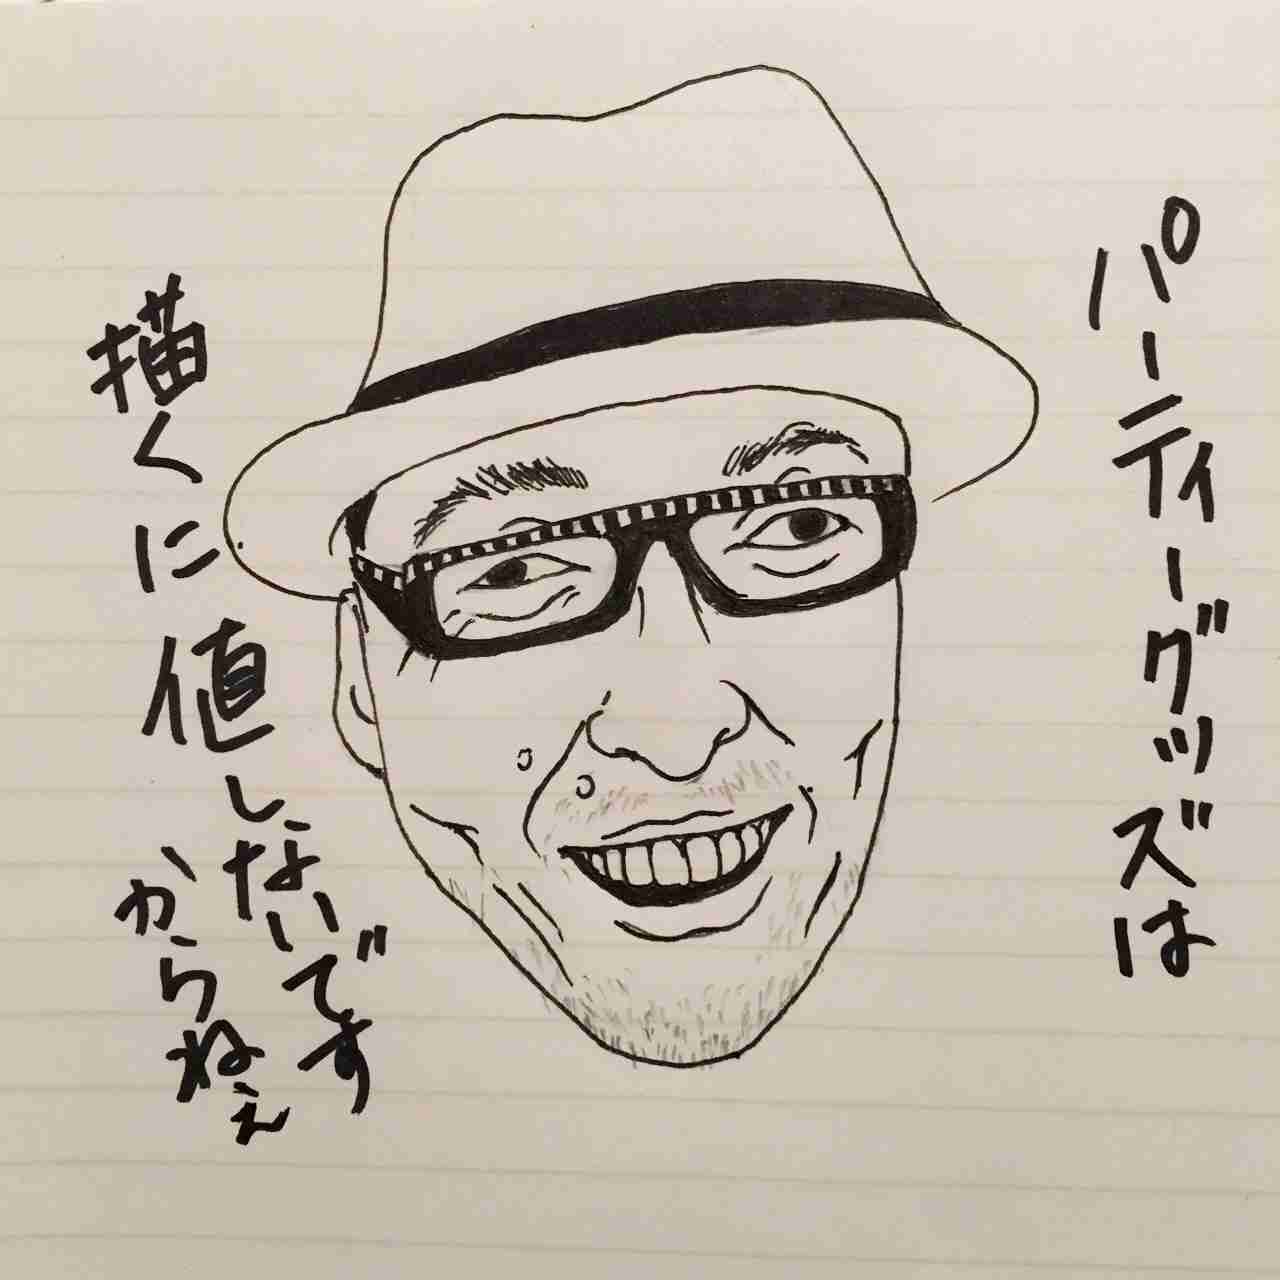 パーティーグッズは
描くに値しないです
からねぇ